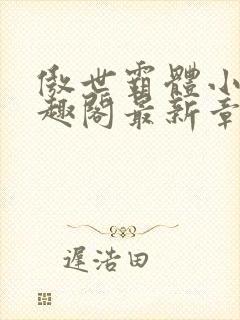 傲世霸體小
趣閣最新章
遲浩田